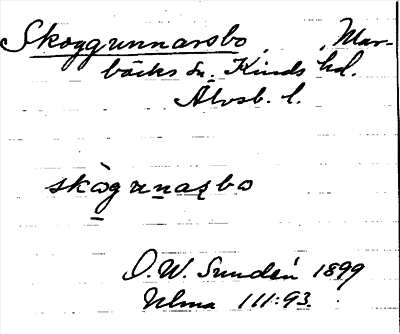 Skoggunnarsbo, Mar-
bäcks sn. Kinds hd.
Älvsb. l.
skògunaʂbo
D. W. Sundén 1899
Ulma 111:93.